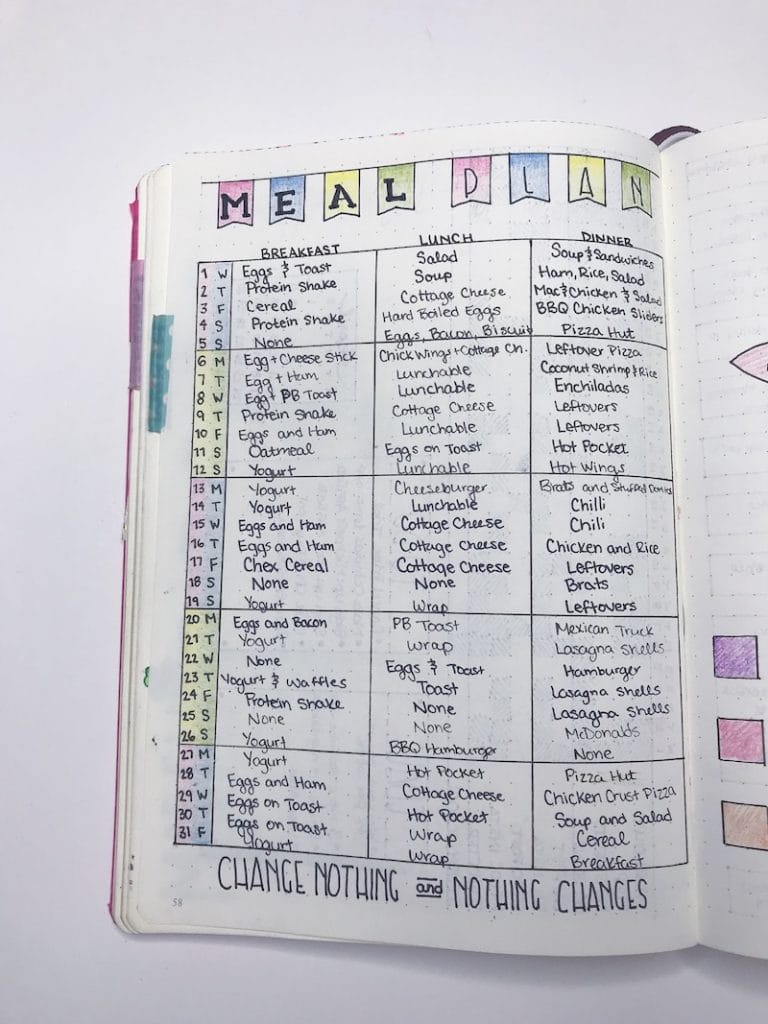 MEAL PLAN
BREAKFAST LUNCH DINNER
1 W Eggs & Toast Salad Soup & Sandwiches
2 T Protein Shake Soup Ham, Rice, Salad
3 F Cereal Cottage Cheese Mac & Chicken & Salad
4 S Protein Shake Hard Boiled Eggs BBQ Chicken Sliders
5 S None Eggs, Bacon, Biscuit Pizza Hut
6 M Egg + Cheese Stick Chick Wings + Cottage Ch. Leftover Pizza
7 T Egg + Ham Lunchable Coconut Shrimp & Rice
8 W Egg + PB Toast Lunchable Enchiladas
9 T Protein Shake Cottage Cheese Leftovers
10 F Eggs and Ham Lunchable Leftovers
11 S Oatmeal Eggs on Toast Hot Pocket
12 S Yogurt Lunchable Hot Wings
13 M Yogurt Cheeseburger Brats and Stuffed
14 T Yogurt Lunchable Chilli
15 W Eggs and Ham Cottage Cheese Chili
16 T Eggs and Ham Cottage Cheese Chicken and Rice
17 F Chex Cereal Cottage Cheese Leftovers
18 S None None Brats
19 S Yogurt Wrap Leftovers
20 M Eggs and Bacon PB Toast Mexican Truck
21 T Yogurt Wrap Lasagna Shells
22 W None Eggs & Toast Hamburger
23 T Yogurt & Waffles Toast Lasagna Shells
24 F Protein Shake None Lasagna Shells
25 S None None McDonalds
26 S Yogurt BBQ Hamburger None
27 M Yogurt Hot Pocket Pizza Hut
28 T Eggs and Ham Cottage Cheese Chicken Crust Pizza
29 W Eggs on Toast Hot Pocket Soup and Salad
30 T Eggs on Toast Wrap Cereal
31 F Yogurt Wrap Breakfast
CHANGE NOTHING and NOTHING CHANGES
58